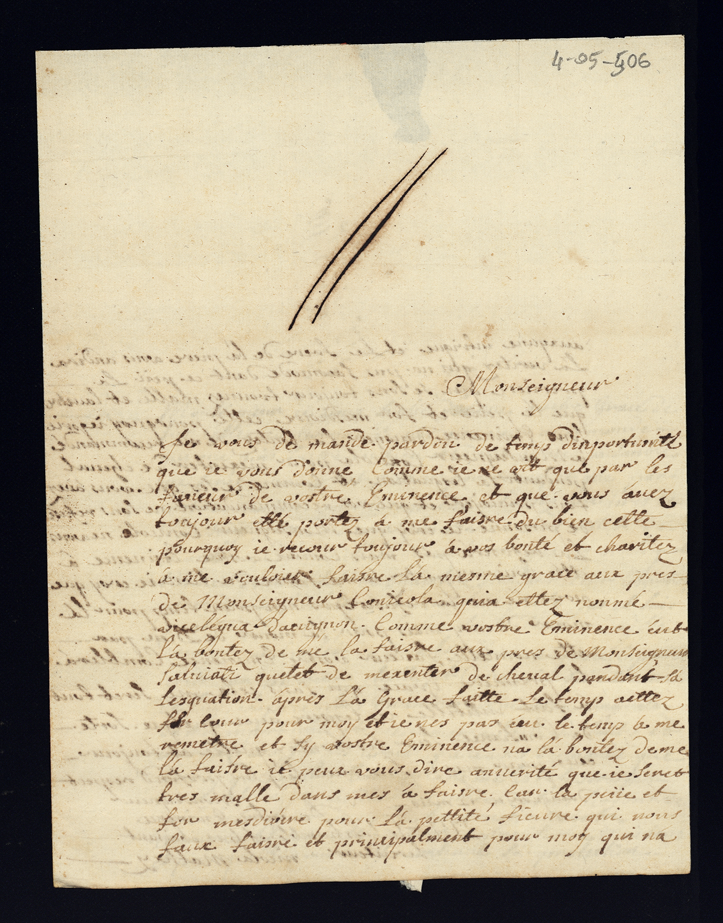 4-05-506
Monseigneur
Je vous de mande pardon de temp dinportunite
que ie vous donne Comme ie ne vit que par les
faueur de vostre Eminence et que vous auez
toujour etté portez à me faisre du bien cette
pourquoy ie recour toujour à vos bonté et charitez
à me vouloir faisre La mesme grace aux pres
de Monseigneur qui a ettez nonmé
vicelegua Dauignon Comme vostre Eminence eut
La bontez de me la faisre aux pres de Monseigneur
Saluiati quelet de mexenter de cheval pandant sa
Lesquation àprès La Grace faitte Le temp aettez
cour pour moy et ie nes pas eu le temp à me
remetre et sy vostre Eminence na là bontez de me
là faisre ie peux vous dire anuerité que ie seret
tres malle dans mes à faisre Car la et
for mesdiocre pour La pettité qui nous
faux faisre et principalment pour moy qui na